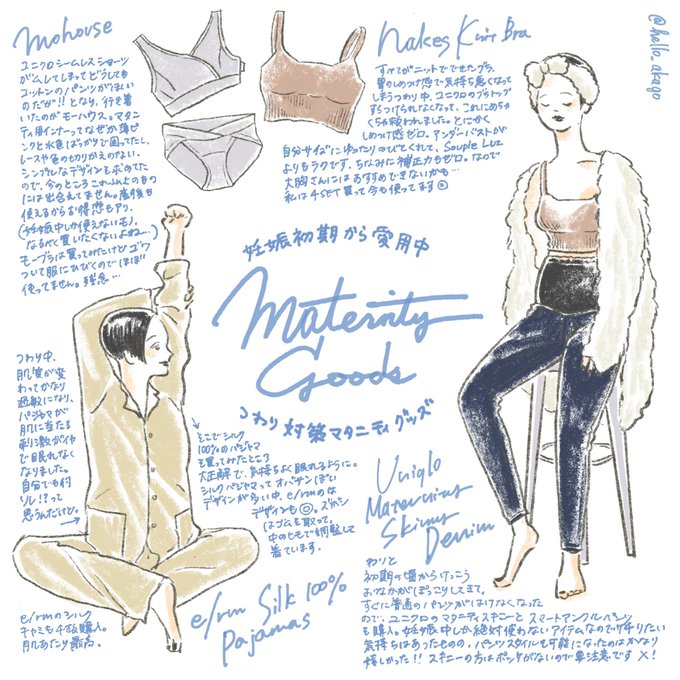 mohouse
ユニクロシームレスショーツ
がムレてしまってどうしても
コットンのパンツがほしい
のだが!!となり、行き着
いたのがモーハウス。マタニ
ティ用インナーってなぜか薄ピ
ンクと水色ばかりで困ってたし、
レースや色の切りかえのない、
シンプルなデザインを求めてた
ので、今のところこれ以上のもの
には出会えてません。産後も
使えるからお得感もアリ。
(妊娠中しか使えないモノ、
なるべく買いたくないよね…)
モーブラは買ってみたけどユワ
ついて服にひびくのでほぼ
使ってません。残念…
Nakes Knit Bra
すべてがニットでできたブラ。
胃のしめつけ感で気持ち悪くなって
しまうつわり中、ユニクロのブラトップ
すらつけられなくなって、これにめちゃ
くちゃ救われました。とにかく
しめつけ感ゼロ。アンダーバストが
自分サイズにゆったりのびてくれて、Souple Luz
よりもラクです。ちなみに補正力もゼロ。なので
大胸さんにはおすすめできないかも…
私は4SET買って今も使ってます
@hello_akago
妊娠初期から愛用中
Maternity
Goods
つわり対策マタニティグッズ
つわり中、
肌質が変
わってかなり
過敏になり、
パジャマが
肌に当たる
刺激がイヤ
で眠れなく
なりました。
自分でも何
ソレ!?って
思うんだけど。
そこでシルク
100%のパジャマ
を買ってみたところ
大正解で、気持ちよく眠れるように。
シルクパジャマってオバサンぽい
デザインが多い中、e/rmのは
デザインも◎。ズボン
はゴムを取って、
中のヒモで調整して
着ています。
e/rmのシルク
キャミも千枚購入。
肌あたり最高。
e/rm Silk 100%
Pajamas
Uniqlo
Maternity
Skinny
Denim
わりと
初期の頃からけっこう
おなかがぽっこりしてきて、
すぐに普通のパンツがはけなくなった
ので、ユニクロのマタニティスキニーとスマートアンクルパンツ
を購入。妊娠中しか絶対使わないアイテムなのでケチりたい
気持ちはあったものの、パンツスタイルも可能になったのはかなり
嬉しかった!! スキニーの方はポッケがないので要注意です×!